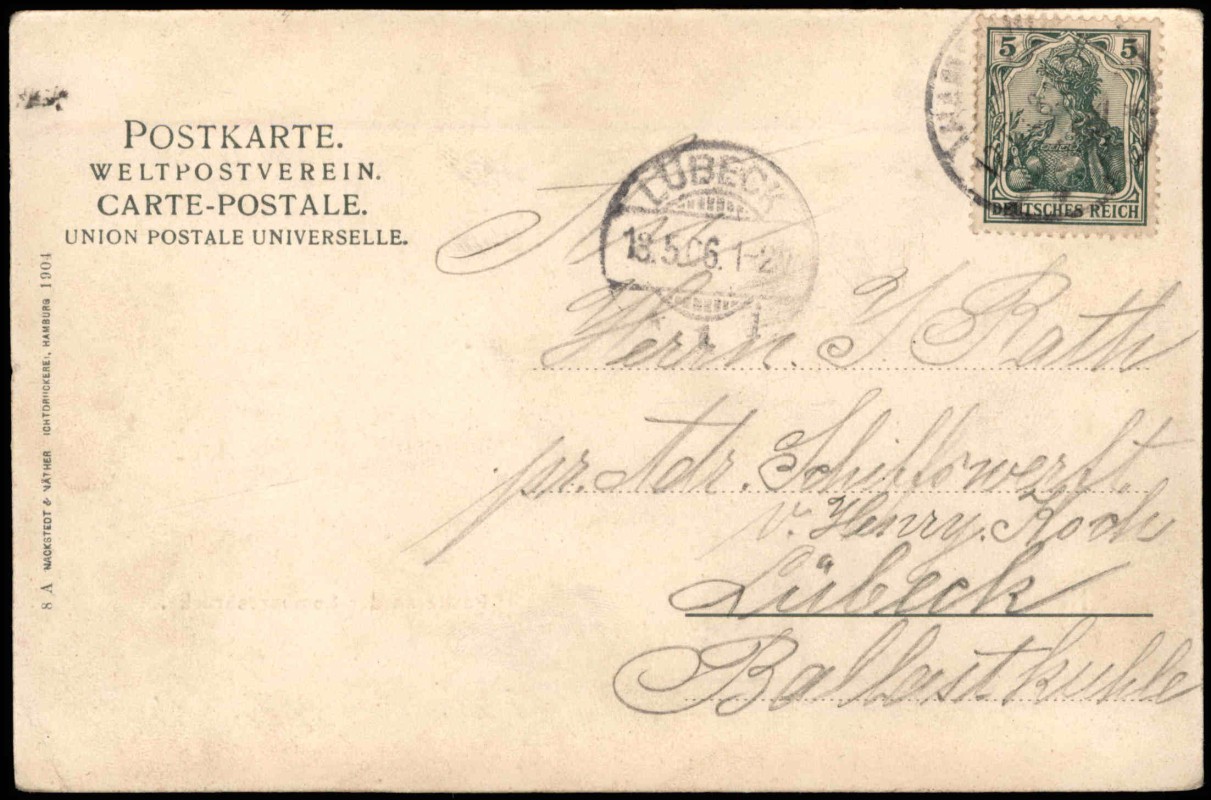 POSTKARTE.
WELTPOSTVEREIN.
CARTE-POSTALE.
UNION POSTALE UNIVERSELLE.
8 A KNACKSTEDT & NÄTHER LICHTDRUCKEREI, HAMBURG 1904
5 5
DEUTSCHES REICH
LÜBECK
18.5.06. 1-2N
* 1 
Herrn. J Rath
pr. Adr. Schiffswerft.
v. Henry. Koch
Lübeck
Ballastkuhle